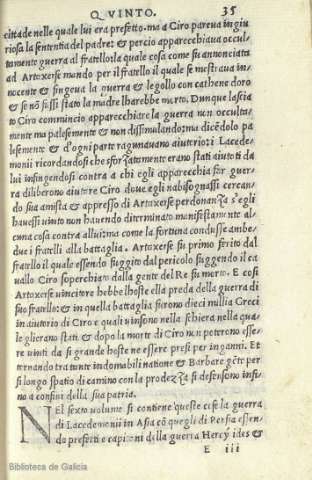 QVINTO. 35
cittade nelle quale lui era prefetto. ma a Ciro pareua ingiu
riosa la sententia del padre: & percio apparecchiaua occul
tamente guerra al fratello: la quale cosa come fu annonciata
ad Artaxerse mando per il fratello il quale se mostraua in-
nocente & fingeua la guerra & legollo con cathene doro
& se nō fussi stato la madre lharebbe morto. Dunque lascia
to Ciro commincio apparecchiare la guerra non occulta-
mente ma palesemente & non dissimilando: ma dicēdolo pa
lesemente & d'ogni parte ragunauano aiutorio: i Lacede-
monii ricordandosi che sforzatamente erano stati aiutoti da
lui infingendosi contra a chi egli apparecchia ssr guer-
ra diliberono aiutare Ciro doue egli nabisognassi cercan-
do sua amista & appresso di Artaxerse perdonanza s'egli
hauessi uinto non hauendo diterminato manifestamente al-
cuna cosa contra allui: ma come la fortuna condusse ambe-
due i fratelli alla battaglia. Artaxerse fu primo ferito dal
fratello il quale essendo fuggito dal pericolo fuggendo il ca
uallo Ciro soperchiato dalla gente del Re fu morto. E cosi
Artaxerse uincitore hebbe lhoste ella preda della guerra di
suo fratello: & in quella battaglia furono dieci millia Greci
in aiutorio di Ciro e quali uinsono nella schiera nella qua-
le glierano stati & dopo la morte di Ciro non poterono esse-
re uinti da si grande hoste ne essere presi per inganni. Et
tornando tra tante indomabili natione & Barbare gēti per
si longo spatio di camino con la prodezza si defensono infi-
no a confini della sua patria.
NEl sexto uolume si contiene queste cose la guerra
di Lacedemonii in Asia cō quegli di Persia essen-
do prefetti e capitani della guerra Hercynides &
E iii
Biblioteca de Galicia